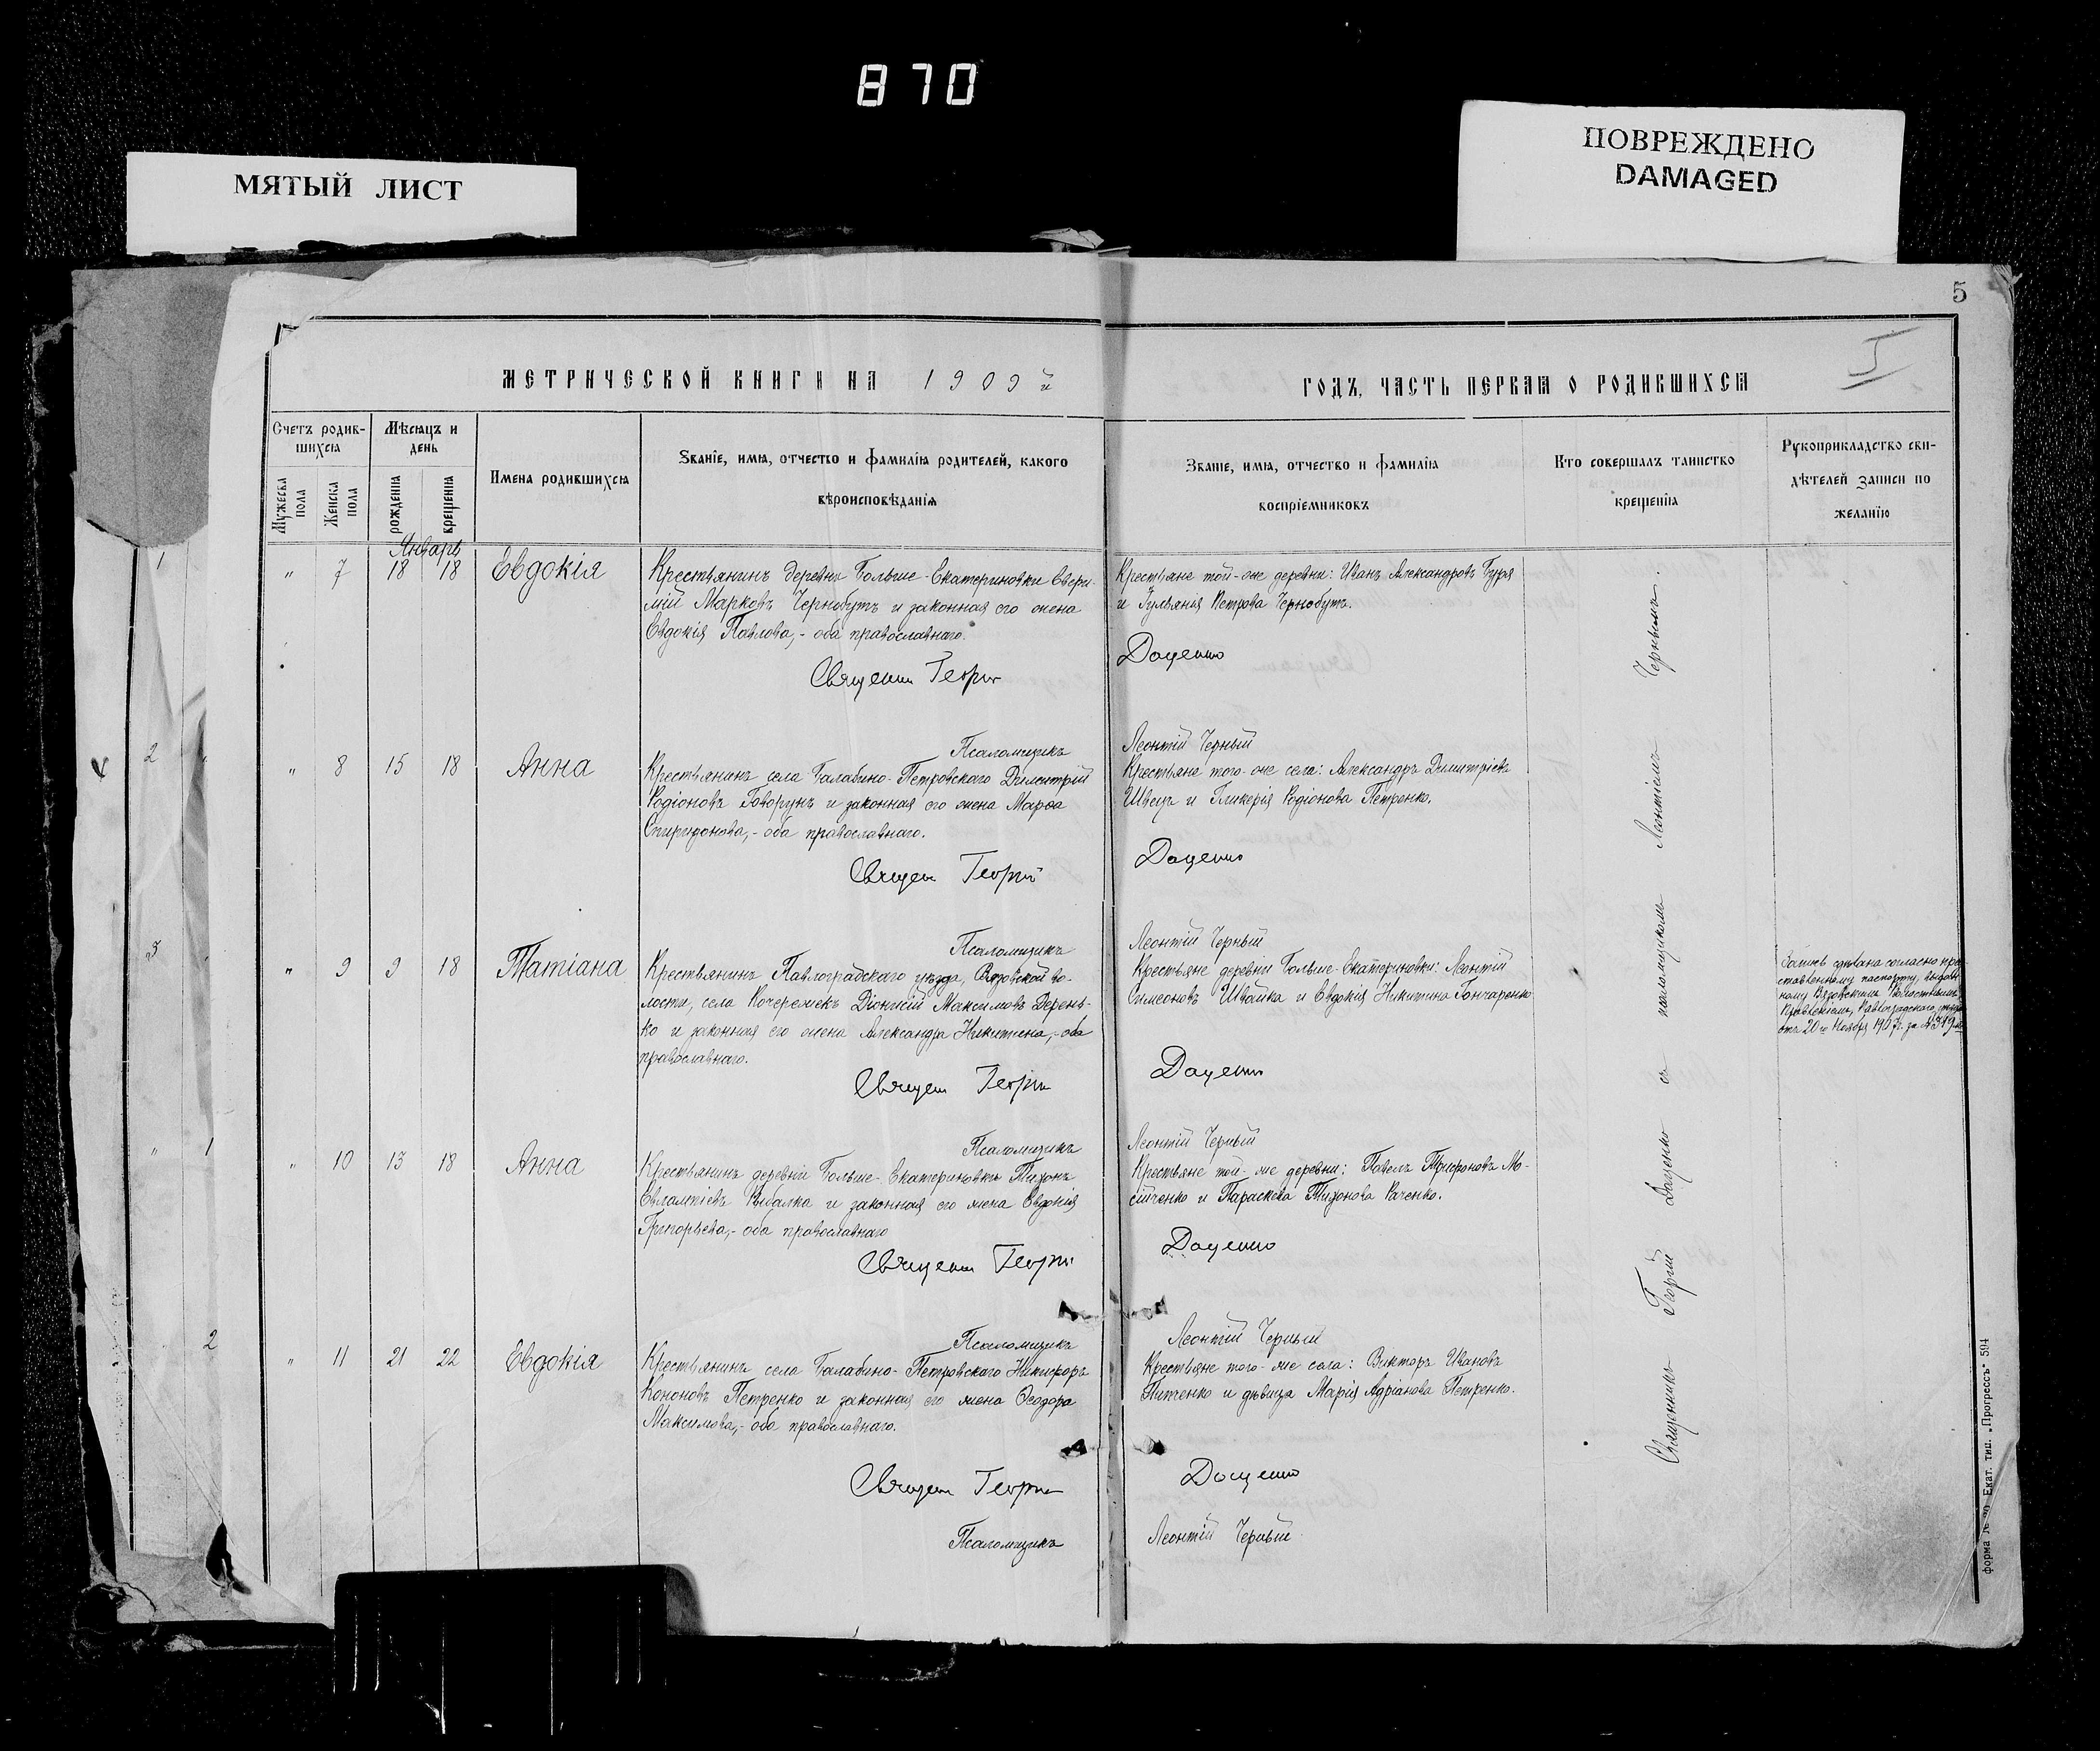 870
МЯТЫЙ ЛИСТ
ПОВРЕЖДЕНО
DAMAGED
5
5
МЕТРИЧЕСКОЙ КНИГИ НА 1909й
ГОДЪ, ЧАСТЬ ПЕРВАЯ О РОДИВШИХСЯ
Счетъ родив-
шихся
Мужеска пола
Женска пола
Мѣсяцъ и
день
рожденія
крещенія
Имена родившихся
Званіе, имя, отчество и фамилія родителей, какого
вѣроисповѣданія
Званіе, имя, отчество и фамилія
воспріемниковъ
Кто совершалъ таинство
крещенія
Рукоприкладство сви-
дѣтелей записи по
желанію
Январь
1
" 7 18 18 Евдокія
Крестьянинъ деревни Больше-Екатериновки Ефи-
мій Марковъ Чернобутъ и законная его жена
Евдокія Павлова,- оба православнаго.
Священ Георгій
Псаломщикъ
Крестьяне той-же деревни: Иванъ Александровъ Буря
и Іуліанія Петрова Чернобутъ.
Даценко
Леонтій Черный
2
" 8 15 18 Анна
Крестьянинъ села Балабино-Петровскаго Димитрій
Родіоновъ Говорунъ и законная его жена Марѳа
Спиридонова,- оба православнаго.
Священ Георгій
Псаломщикъ
Крестьяне того-же села: Александръ Димитріевъ
Швецъ и Гликерія Родіонова Петренко.
Даценко
Леонтій Черный
3
" 9 9 18 Татіана
Крестьянинъ Павлоградскаго уѣзда, Вязовской во-
лости, села Кочережекъ Діонисій Максимовъ Дерень-
ко и законная его жена Александра Никитина,- оба
православнаго.
Священ Георгій
Псаломщикъ
Крестьяне деревни Больше-Екатериновки: Леонтій
Симеоновъ Швайка и Евдокія Никитина Гончаренко
Даценко
Леонтій Черный
Запись сдѣлана согласно пред
ставленному паспорту, выдан
ному Вязовскимъ Волостнымъ
Правленіемъ, Павлоградскаго уѣзда
отъ 20го Ноября 1907г. за №
" 1
" 10 13 18 Анна
Крестьянинъ деревни Больше-Екатериновки Тихонъ
Евлампіевъ Рыбалка и законная его жена Евдокія
Григорьева,- оба православнаго
Священ Георгій
Псаломщикъ
Крестьяне той-же деревни: Павелъ Трифоновъ Мо-
сійченко и Параскева Тихонова
Даценко
Леонтій Черный
2
" 11 21 22 Евдокія
Крестьянинъ села Балабино-Петровскаго Никифоръ
Кононовъ Петренко и законная его жена Ѳеодора
Максимова,- оба православнаго.
Священ Георгій
Псаломщикъ
Крестьяне того-же села: Викторъ Ивановъ
и дѣвица Марія Адріанова Петренко.
Даценко
Леонтій Черный
Священникъ Георгій Даценко съ псаломщикомъ Леонтіемъ Чернымъ.
форма № Екат. тип. „Прогрессъ" 594